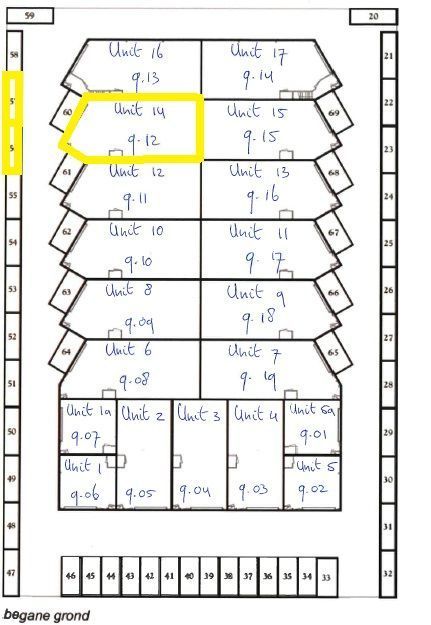 59 20
58 Unit 16 Unit 17 21
9.13 9.14 22
60 Unit 14 Unit 15 69
9.12 9.15 23
61 Unit 12 Unit 13 68
55 9.11 9.16 24
62 Unit 10 Unit 11 67
54 9.10 9.17 25
63 Unit 8 Unit 9 66
53 9.09 9.18 26
52 27
64 Unit 6 Unit 7 65
51 9.08 9.19 28
Unit 1a Unit 2 Unit 3 Unit 4 Unit 5a
50 9.07 9.01 29
Unit 1 Unit 5
49 9.06 9.05 9.04 9.03 9.02 30
48 31
47 32
46 45 44 43 42 41 40 39 38 37 36 35 34 33
begane grond